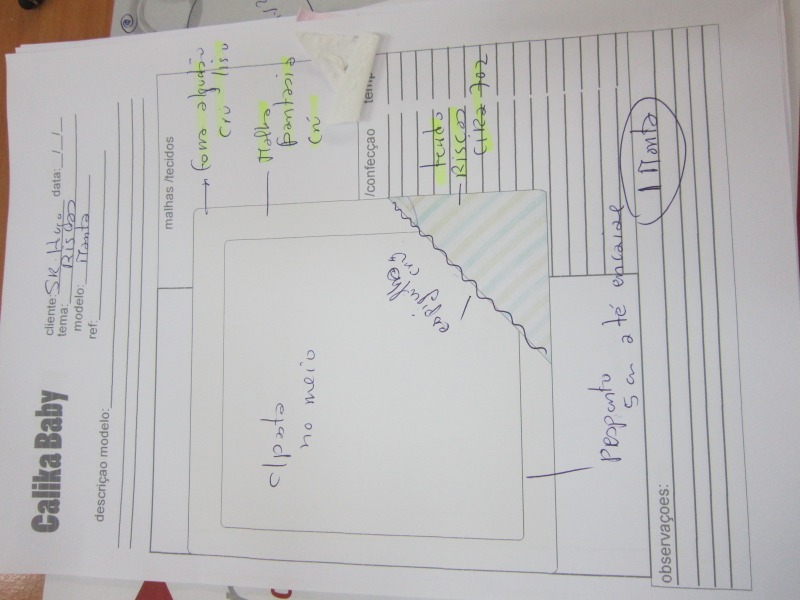 Calika Baby
cliente:
data: __/__/__
tema: Riscas
modelo: Manta
ref:
descriçao modelo:
malhas /tecidos
Forra algodão
cru liso
Malha
fantasia
cru
/confecção
temp
tecido
Riscas
c/pata
no meio
cru
pesponto
5 cm até encaixe
1 Manta
observaçoes: